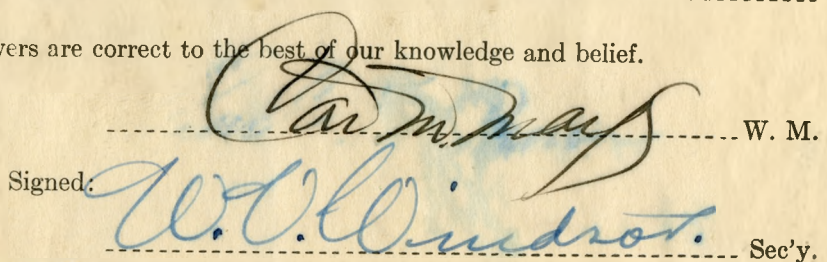 vers are correct to the best of our knowledge and belief.
M. Mays W. M.
Signed:
W. V. Windrot. Sec'y.